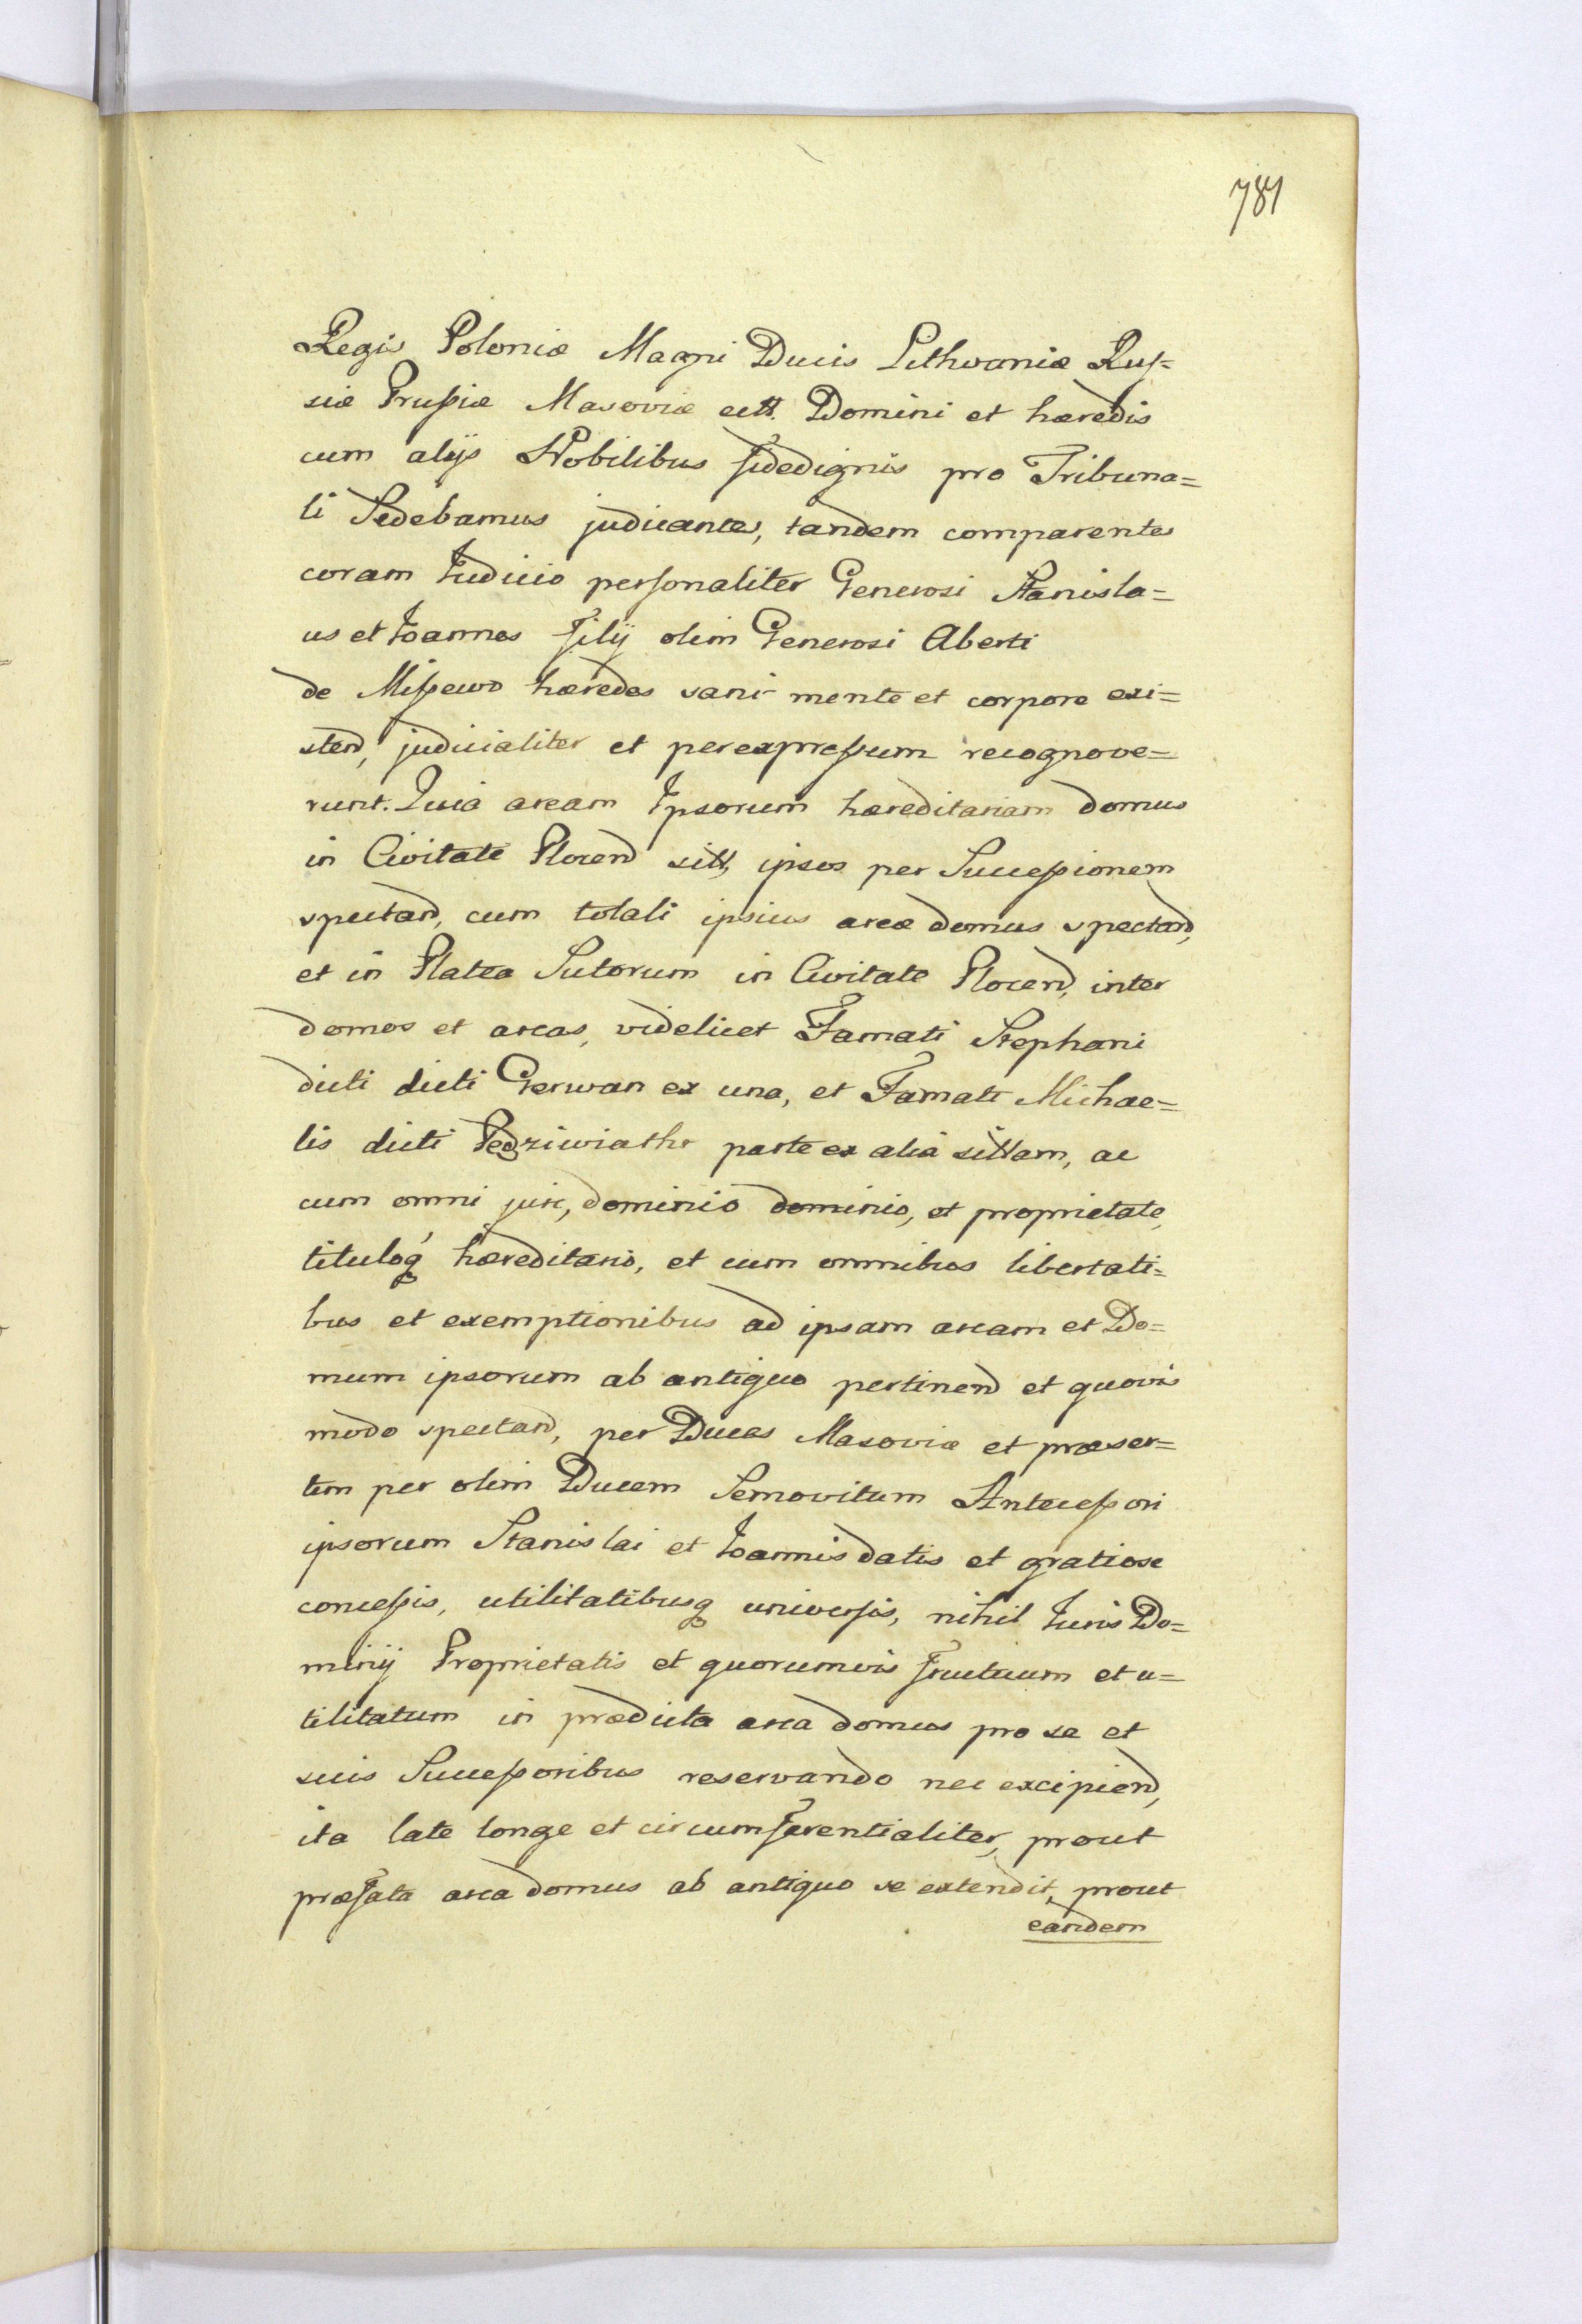 787
Regis Poloniæ Magni Ducis Lithvaniæ Rus=
siæ Prussiæ Masoviæ ectt. Domini et hæredis
cum alijs Nobilibus fidedignis pro Tribuna=
li Sedebamus judicantes, tandem comparentes
coram Judicio personaliter Generosi Stanisla=
us et Joannes filij olim Generosi Aberti
de Missewo hæredes sani mente et corpore exi=
sten, judicialiter et perexpressum recognove=
runt. Quia aream Ipsorum hæreditariam domus
in Civitate Plocen sitt, ipsos per Successionem
spectan, cum totali ipsius areæ domus spectan,
et in Platea Sutorum in Civitate Plocen, inter
domos et areas, videlicet Famati Stephani
dicti dicti Gerwan ex una, et Famati Michae=
lis dicti Pedziwiathr parte ex alia sittam, ac
cum omni jure, dominio dominio, et proprietate,
tituloq hæreditario, et cum omnibus libertati=
bus et exemptionibus ad ipsam aream et Do=
mum ipsorum ab antiquo pertinen et quovis
modo spectan, per Duces Masoviæ et præser=
tim per olim Ducem Semovitum Antecessori
ipsorum Stanislai et Joannis datis et gratiose
concessis, utilitatibusq universis, nihil Juris Do=
minij Proprietatis et quorumvis fructuum et u=
tilitatum in prædicta area domus pro se et
suis Successoribus reservando nec excipien,
ita late longe et circumferentialiter, prout
præfata area domus ab antiquo se extendit, prout
eandem